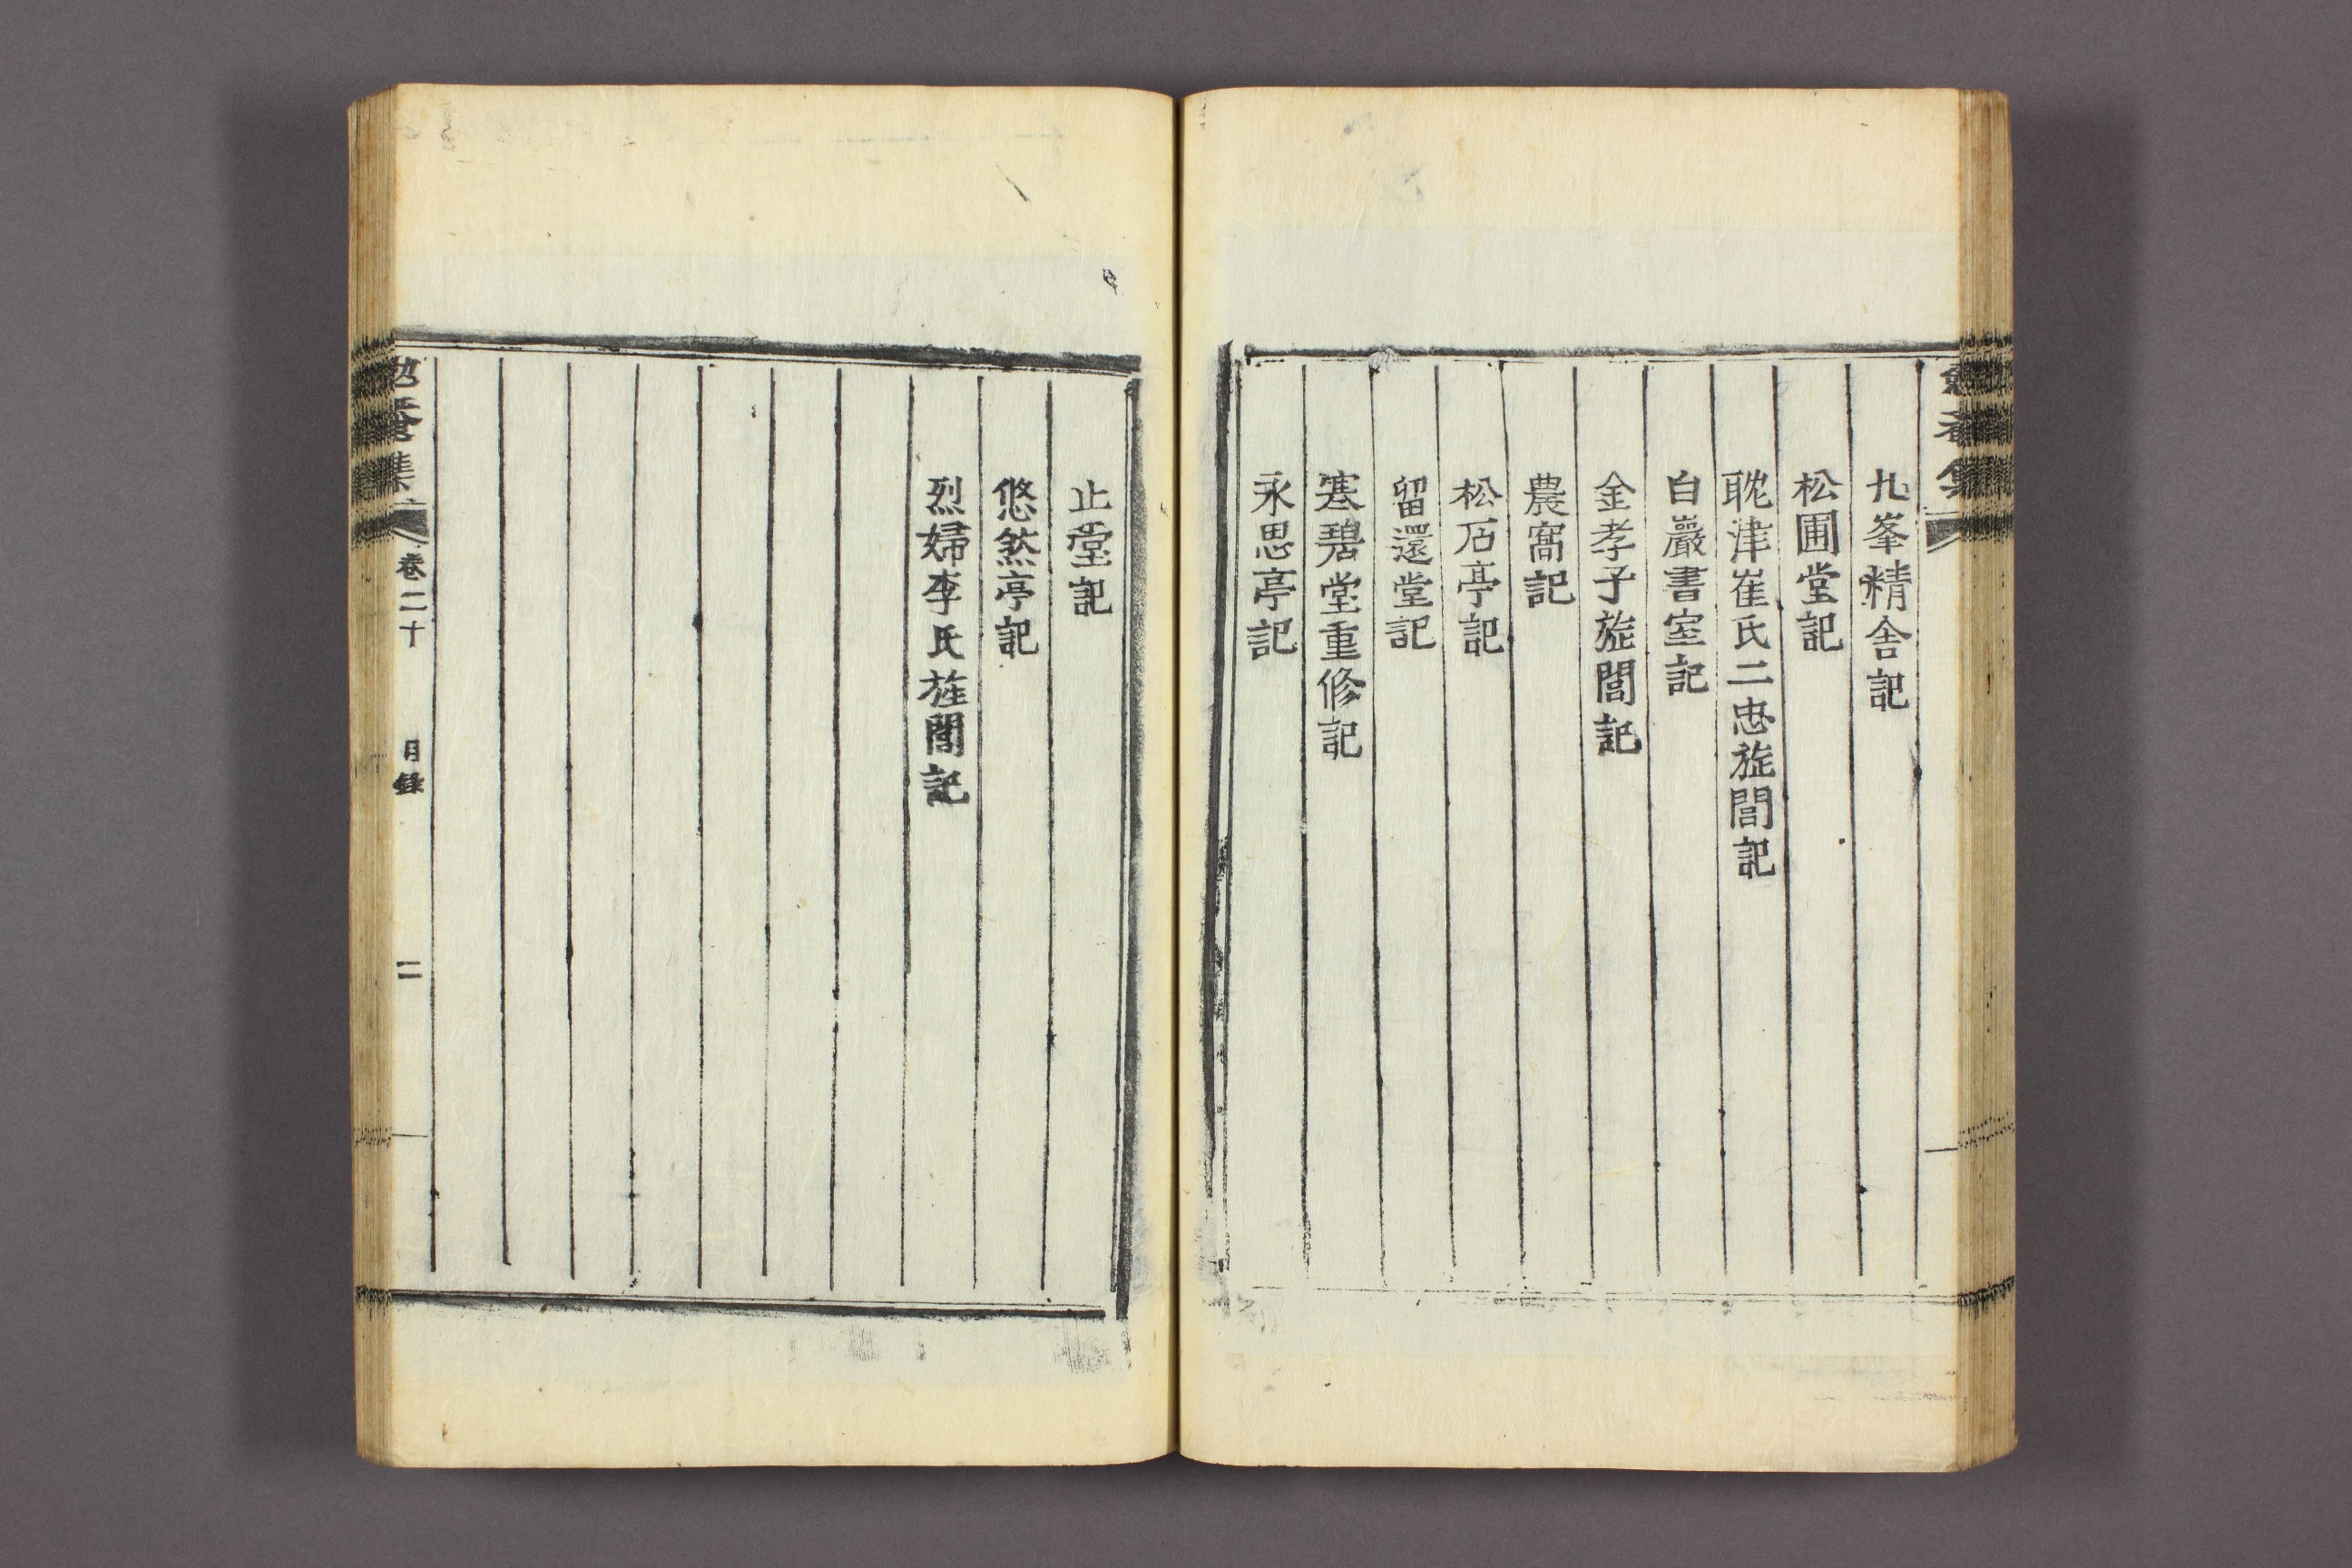 九峯精舍記
松圃堂記
耽津崔氏二忠旌閭記
白巖書室記
金孝子旌閭記
農窩記
松石亭記
留還堂記
寒碧堂重修記
永思亭記
止堂記
悠然亭記
烈婦李氏旌閭記
勉菴集
卷二十
目錄
二